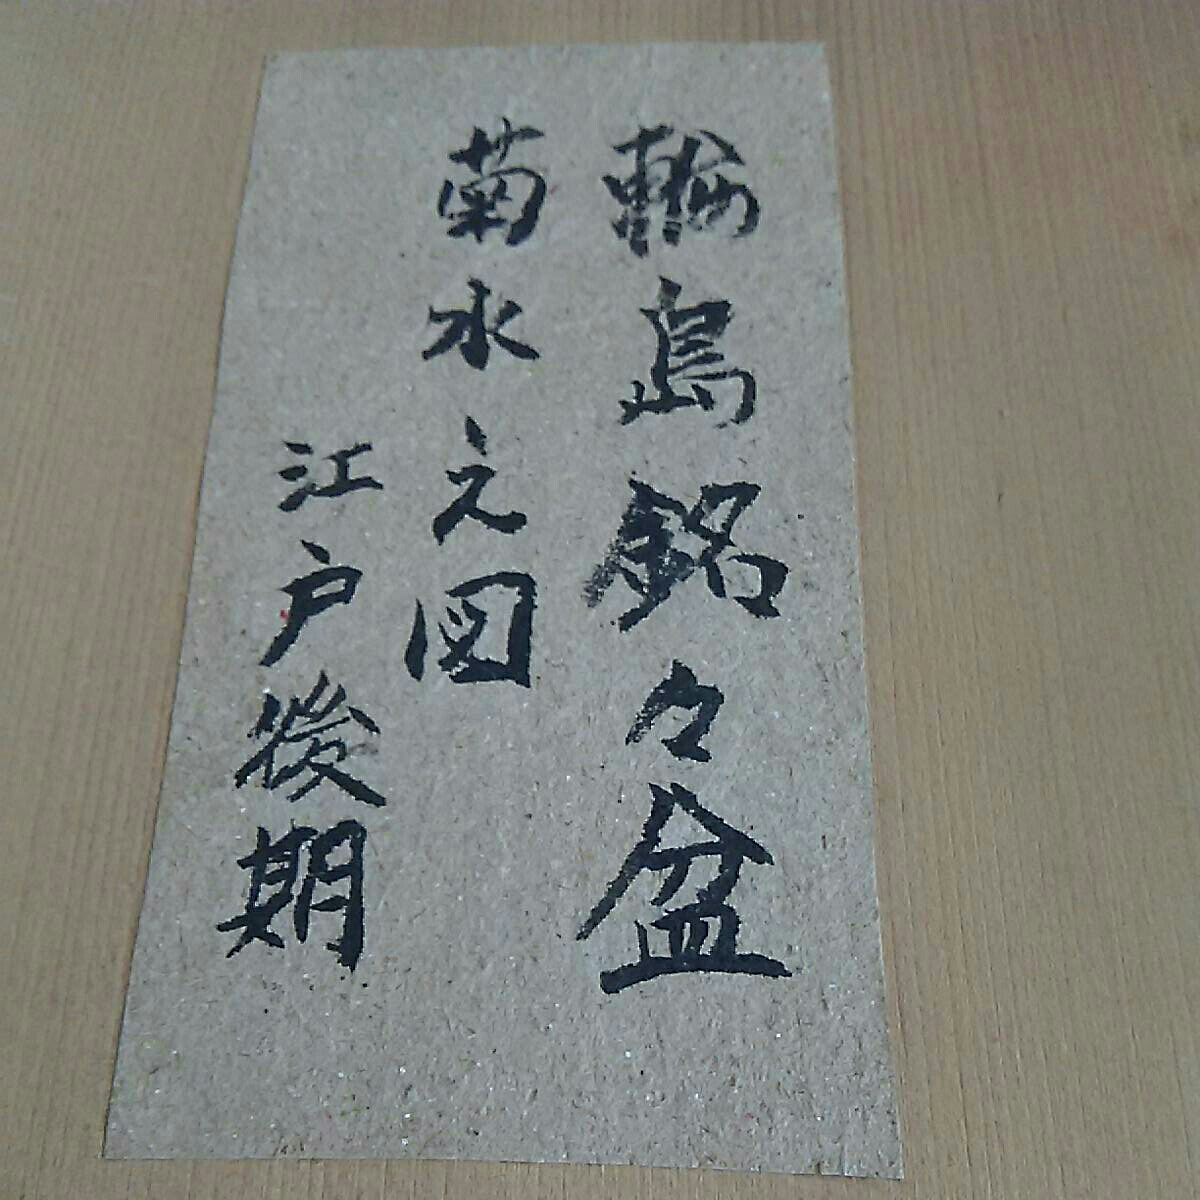 輪島銘々盆
菊水之図
江戸後期